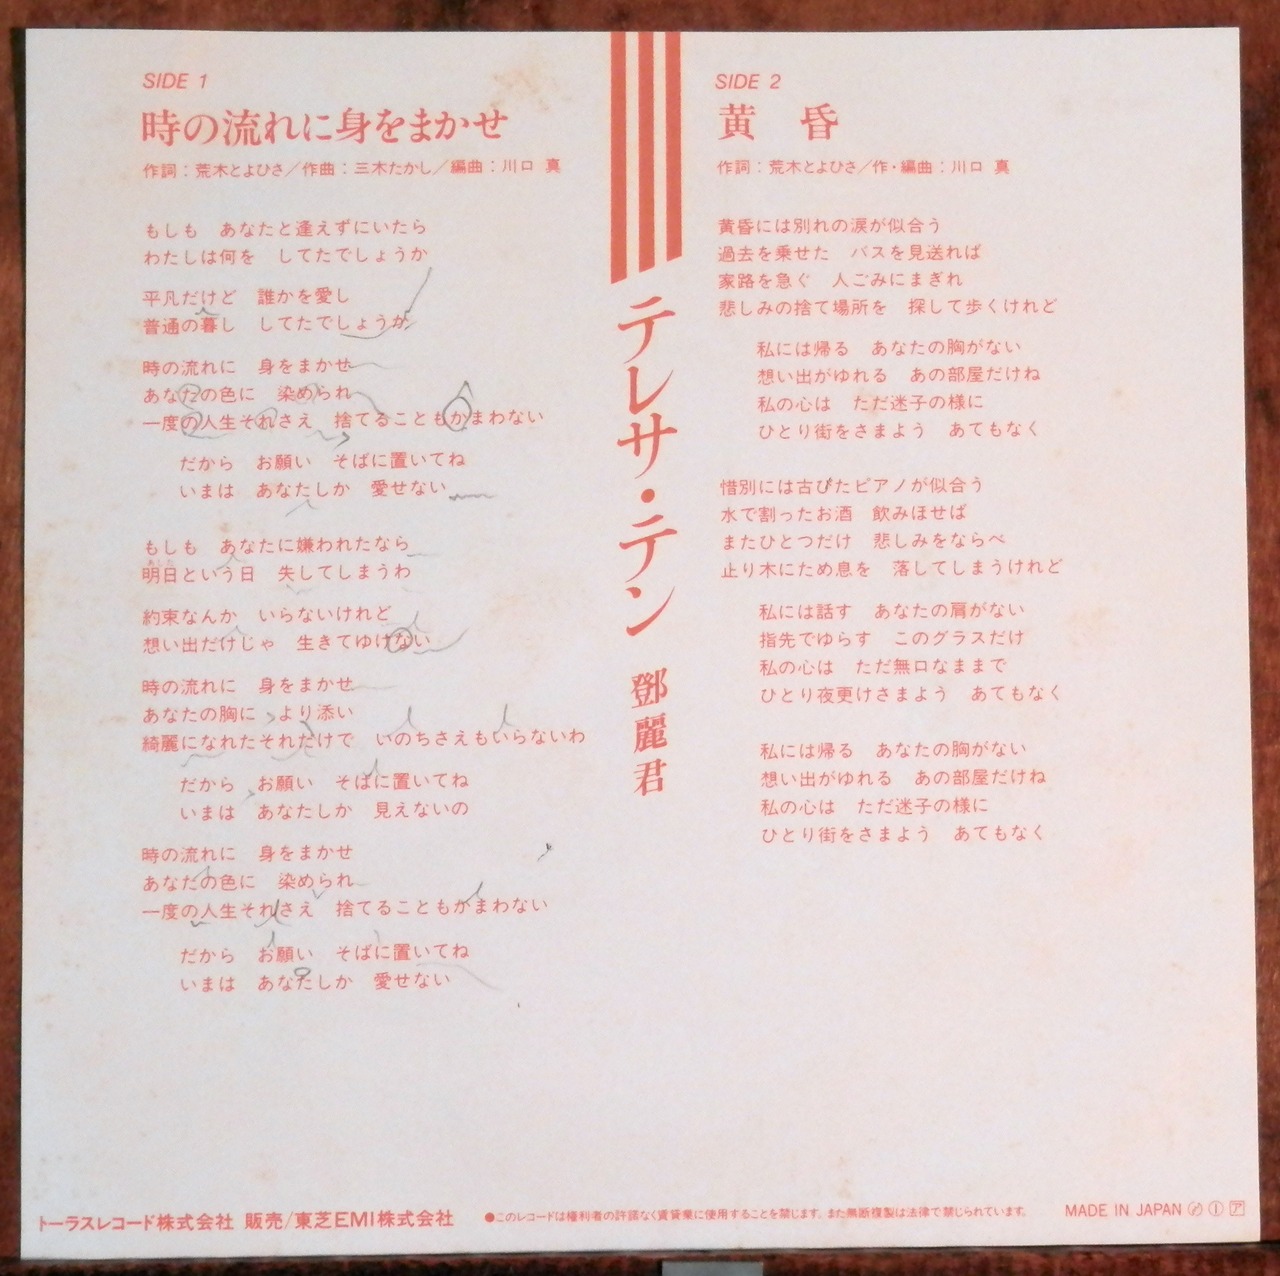 SIDE 1
時の流れに身をまかせ
作詞：荒木とよひさ／作曲：三木たかし／編曲：川口 真
もしも　あなたと逢えずにいたら
わたしは何を　してたでしょうか
平凡だけど　誰かを愛し
普通の暮し　してたでしょうか
時の流れに　身をまかせ
あなたの色に　染められ
一度の人生それさえ　捨てることもかまわない
だから　お願い　そばに置いてね
いまは　あなたしか　愛せない
もしも　あなたに嫌われたなら
あした
明日という日　失してしまうわ
約束なんか　いらないけれど
想い出だけじゃ　生きてゆけない
時の流れに　身をまかせ
あなたの胸に　より添い
綺麗になれたそれだけで　いのちさえもいらないわ
だから　お願い　そばに置いてね
いまは　あなたしか　見えないの
時の流れに　身をまかせ
あなたの色に　染められ
一度の人生それさえ　捨てることもかまわない
だから　お願い　そばに置いてね
いまは　あなたしか　愛せない
テレサ・テン
鄧麗君
SIDE 2
黄　昏
作詞：荒木とよひさ／作・編曲：川口 真
黄昏には別れの涙が似合う
過去を乗せた　バスを見送れば
家路を急ぐ　人ごみにまぎれ
悲しみの捨て場所を　探して歩くけれど
私には帰る　あなたの胸がない
想い出がゆれる　あの部屋だけね
私の心は　ただ迷子の様に
ひとり街をさまよう　あてもなく
惜別には古びたピアノが似合う
水で割ったお酒　飲みほせば
またひとつだけ　悲しみをならべ
止り木にため息を　落してしまうけれど
私には話す　あなたの肩がない
指先でゆらす　このグラスだけ
私の心は　ただ無口なままで
ひとり夜更けさまよう　あてもなく
私には帰る　あなたの胸がない
想い出がゆれる　あの部屋だけね
私の心は　ただ迷子の様に
ひとり街をさまよう　あてもなく
トーラスレコード株式会社 販売/東芝EMI株式会社
●このレコードは権利者の許諾なく賃貸業に使用することを禁じます。また無断複製は法律で禁じられています。
MADE IN JAPAN Ⓟ Ⓘ ア